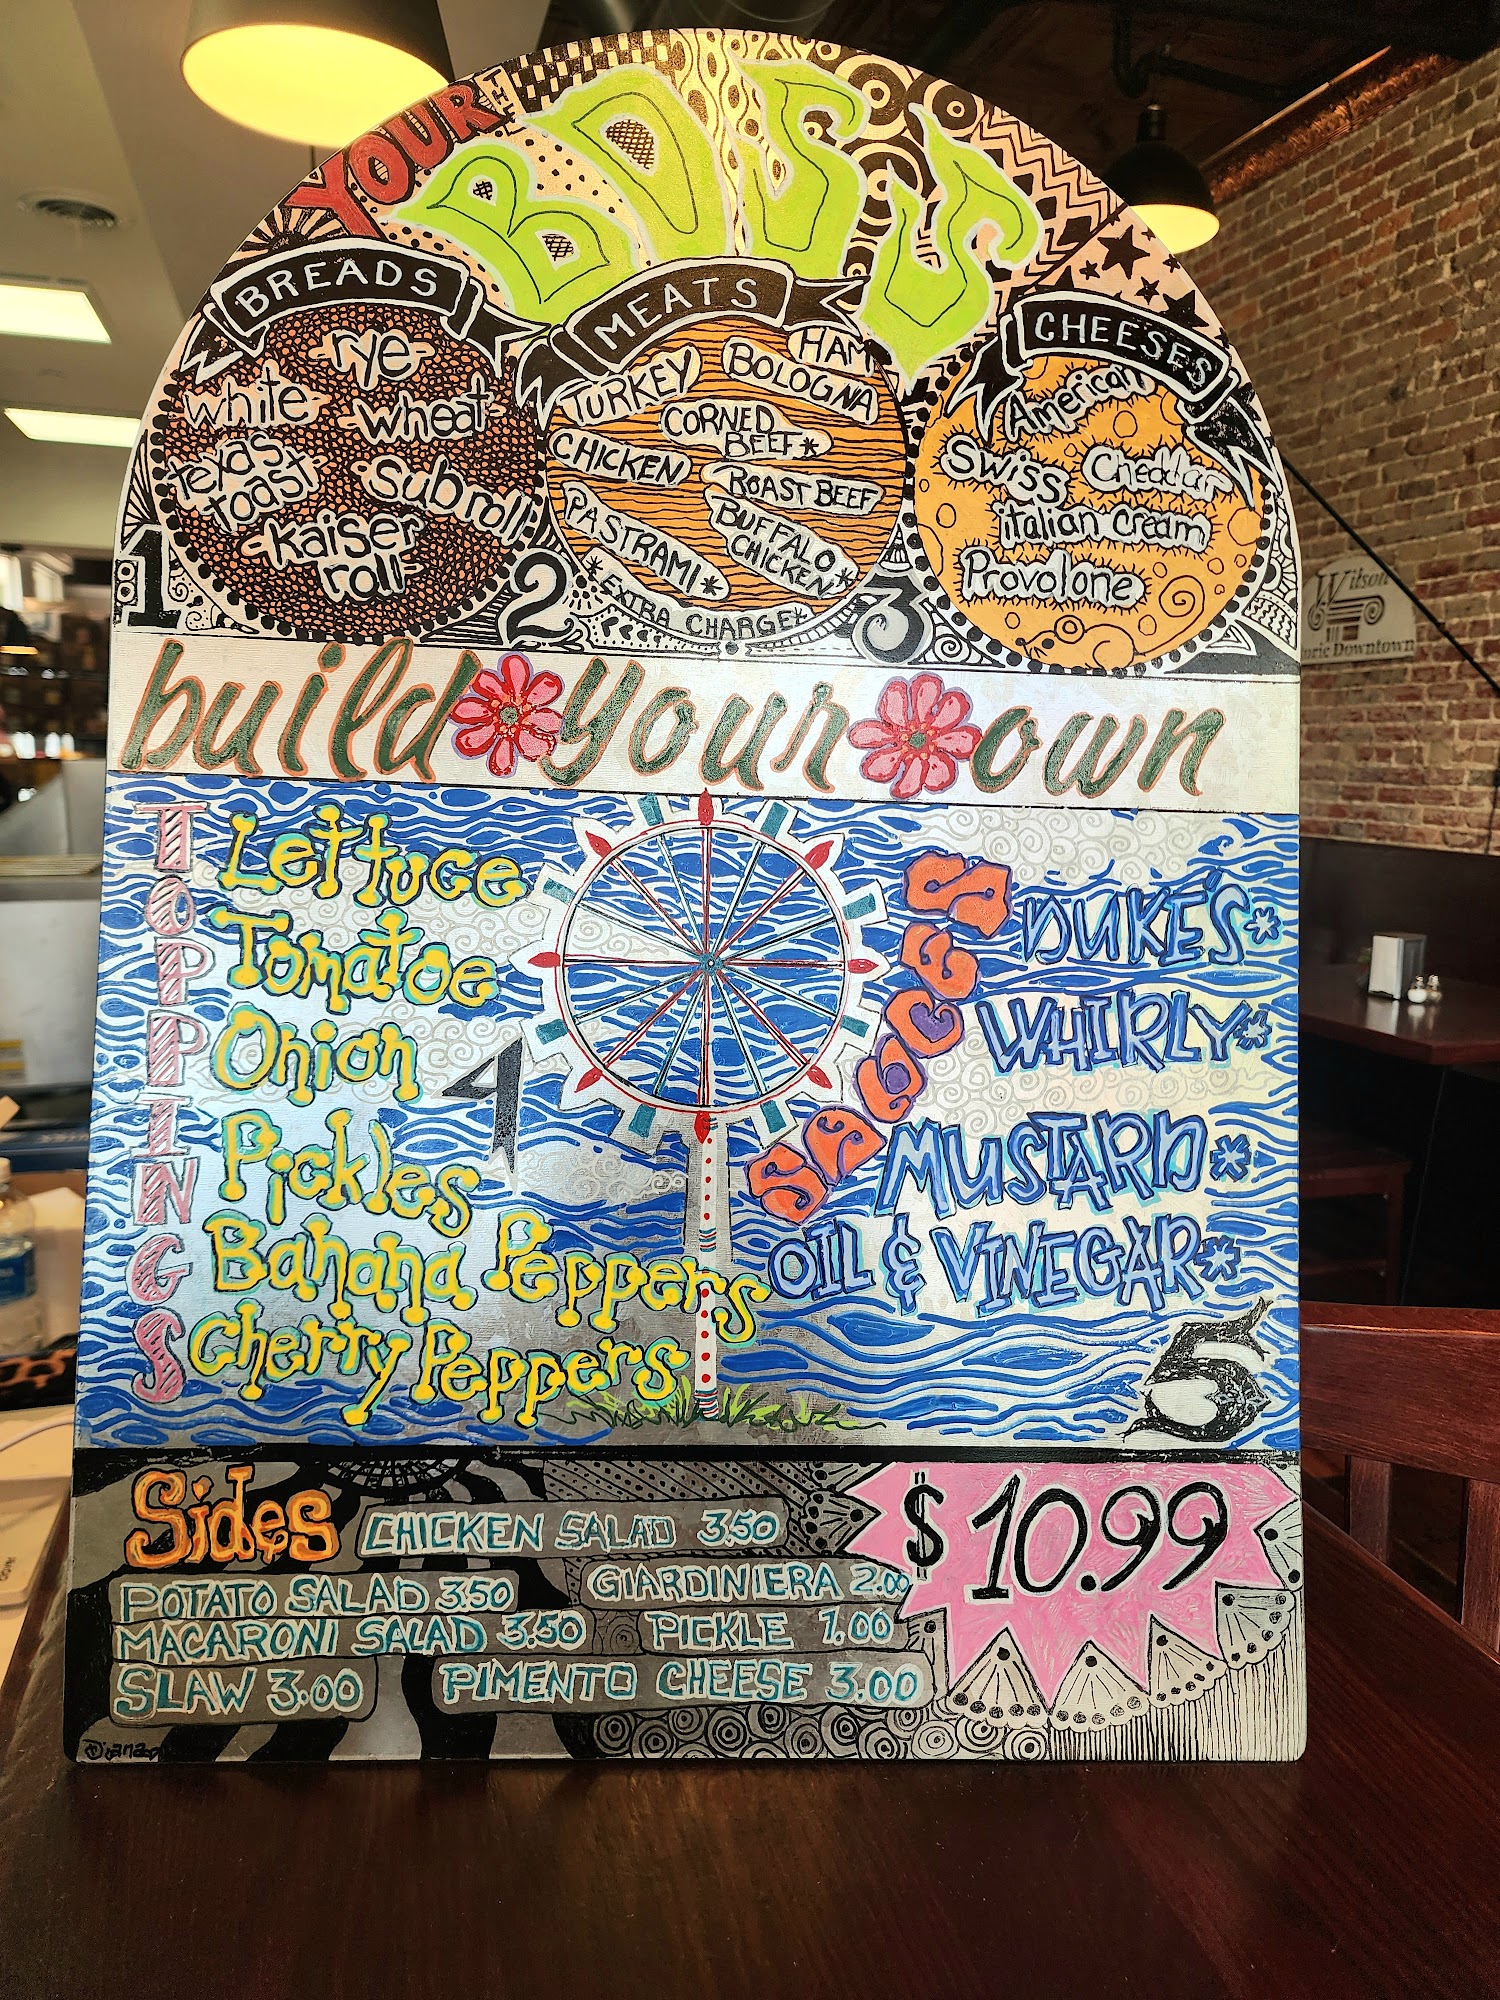 YOUR THE BOSS
BREADS
rye
white
wheat
texas toast
Subroll
kaiser roll
1
MEATS
HAM
TURKEY
BOLOGNA
CORNED BEEF*
CHICKEN
ROAST BEEF
PASTRAMI*
BUFFALO CHICKEN*
*EXTRA CHARGE*
2
CHEESES
American
Swiss
Cheddar
italian cream
Provolone
3
build your own
TOPPINGS
Lettuce
Tomatoe
Onion
Pickles
Banana Peppers
Cherry Peppers
4
SAUCES
DUKE'S*
WHIRLY*
MUSTARD*
OIL & VINEGAR*
5
Sides
CHICKEN SALAD 3.50
POTATO SALAD 3.50
GIARDINIERA 2.00
MACARONI SALAD 3.50
PICKLE 1.00
SLAW 3.00
PIMENTO CHEESE 3.00
$10.99
Diana
Wilson
Historic Downtown